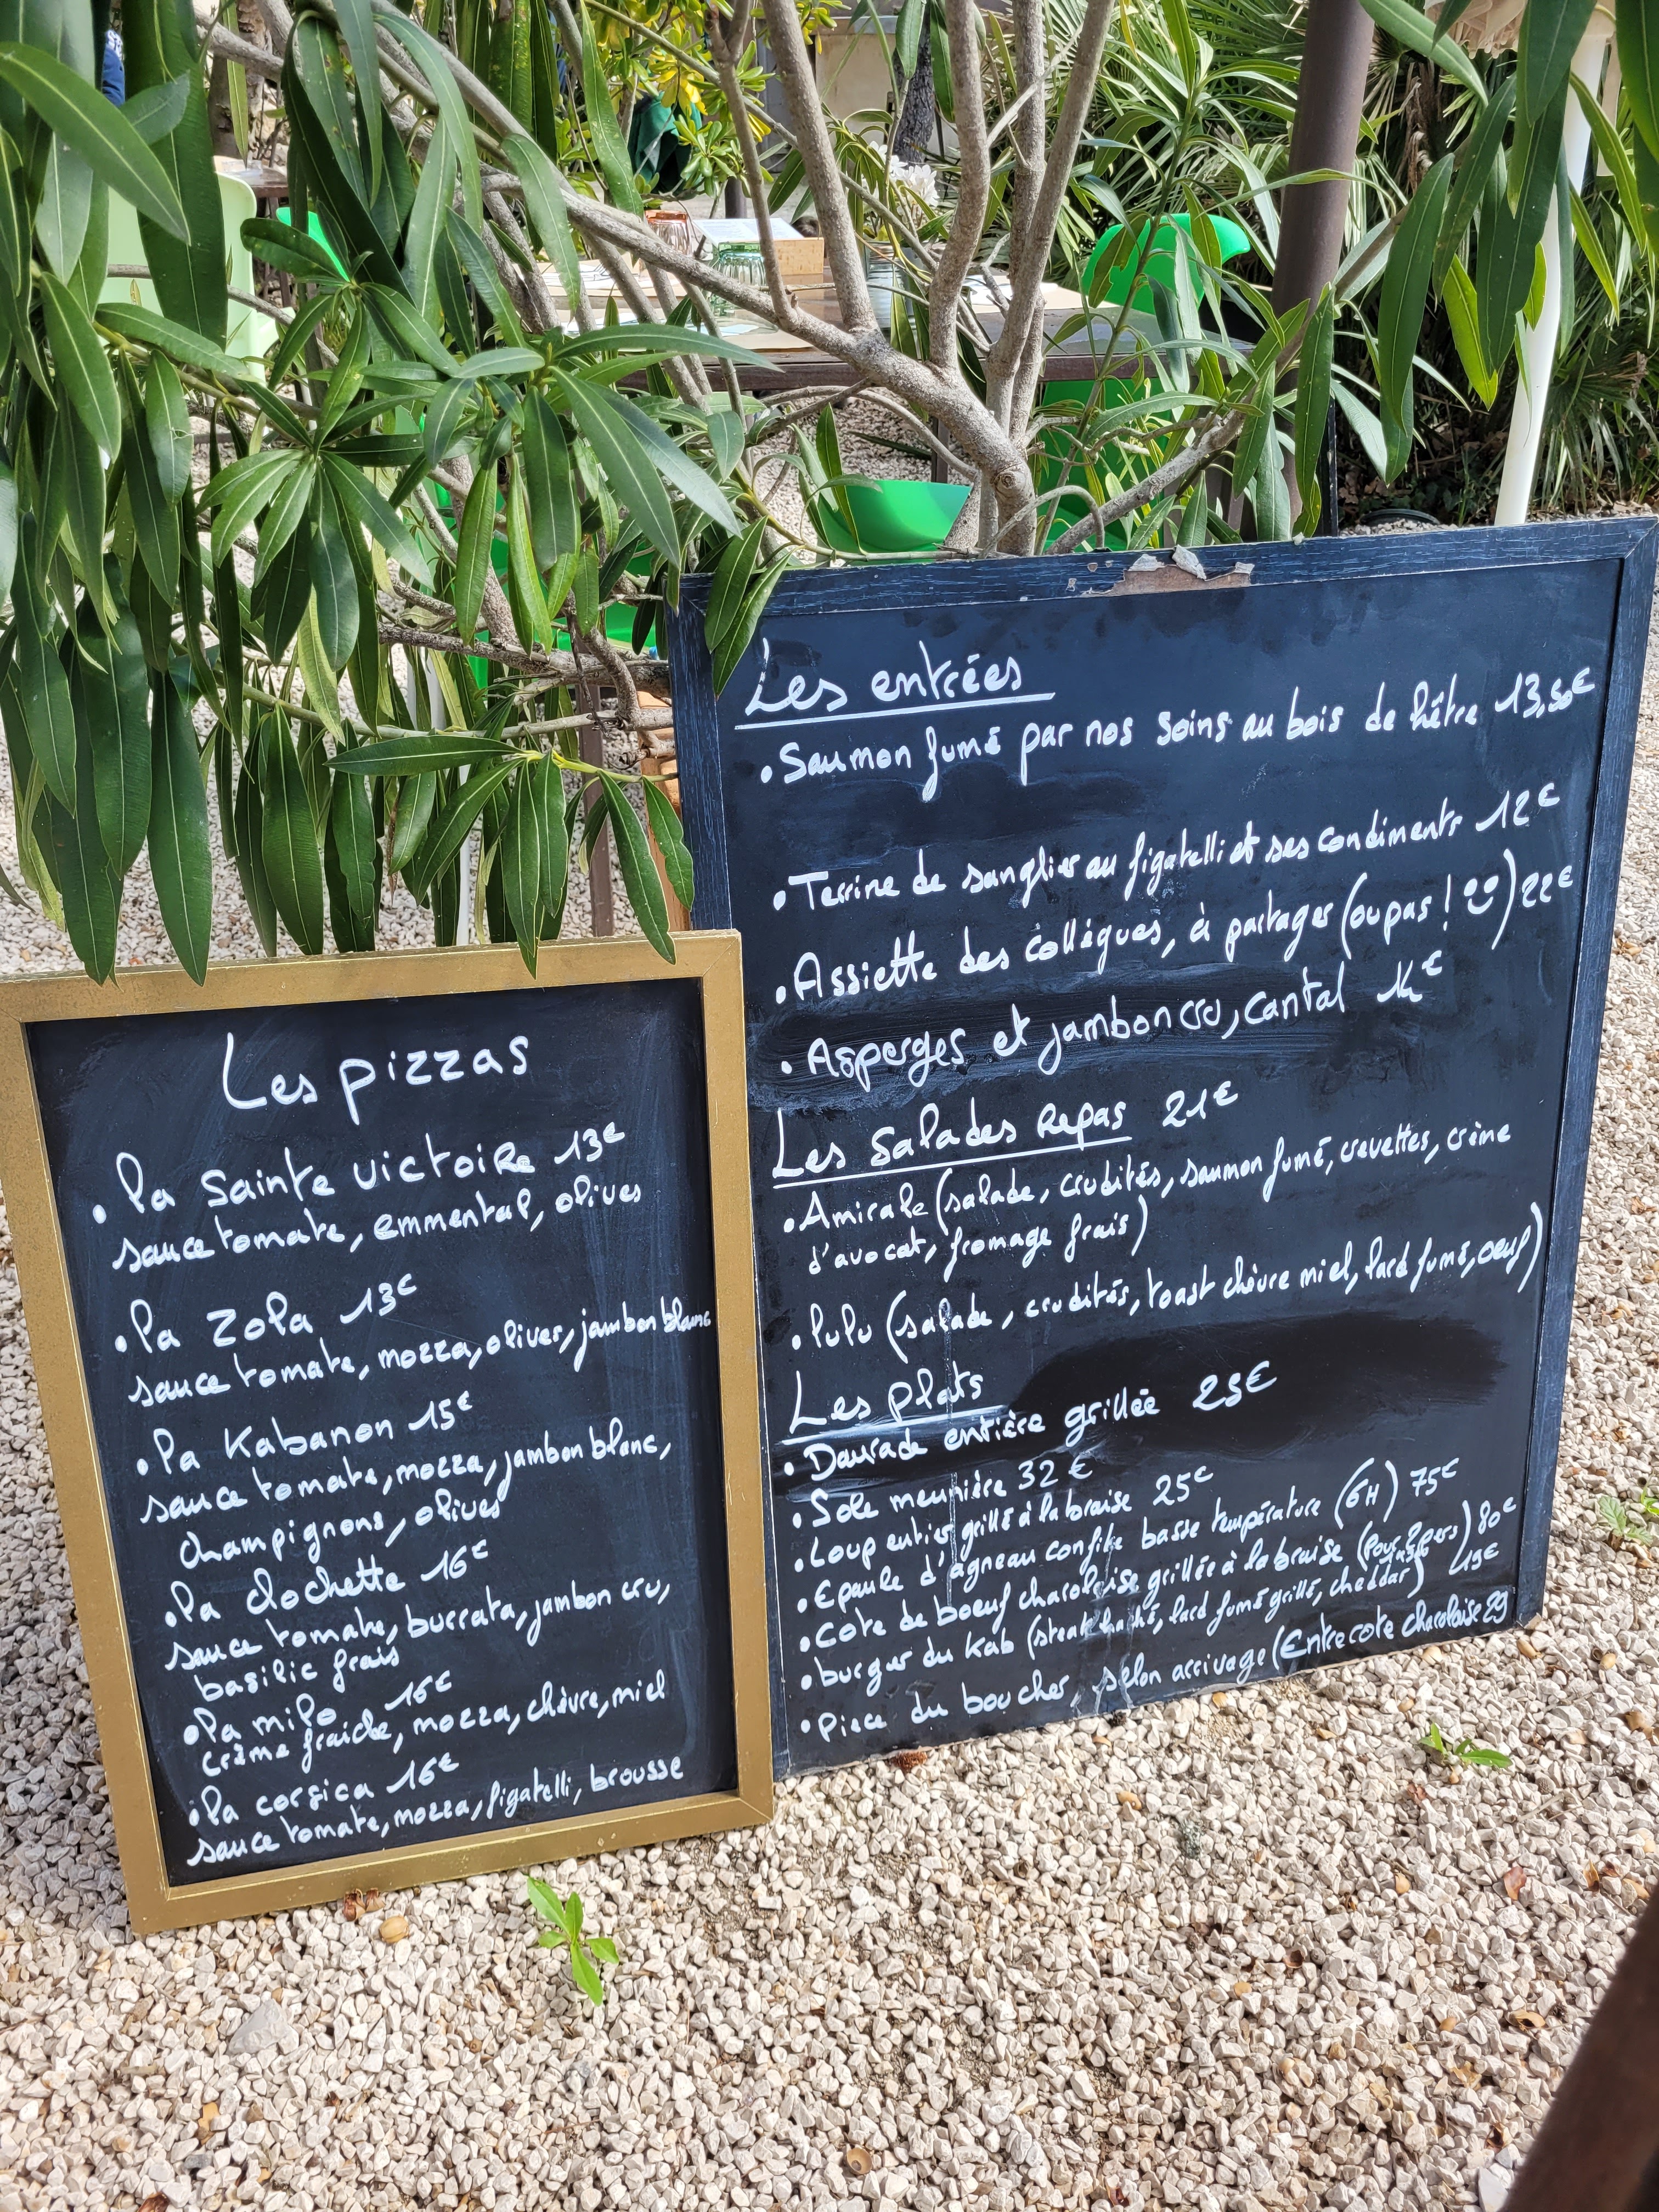 Les pizzas
• la Sainte victoire 13€
sauce tomate, emmental, olives
• la Zola 13€
sauce tomate, mozza, olives, jambon blanc
• la Kabanon 15€
sauce tomate, mozza, jambon blanc,
champignons, olives
• la clochette 16€
sauce tomate, burrata, jambon cru,
basilic frais
• la milo 16€
crème fraiche, mozza, chèvre, miel
• la corsica 16€
sauce tomate, mozza, figatelli, brousse
Les entrées
• Saumon fumé par nos soins au bois de hêtre 13,50€
• Terrine de sanglier au figatelli et ses condiments 12€
• Assiette des collègues, à partager (ou pas ! ) 22€
• Asperges et jambon cru, cantal
Les Salades Repas 21€
• Amicale (salade, crudités, saumon fumé, crevettes, crème
d'avocat, fromage frais)
• lulu (salade, crudités, toast chèvre miel, lard fumé, oeuf)
Les plats
• Daurade entière grillée 25€
• Sole meunière 32€
• Loup entier grillé à la braise 25€
• Epaule d'agneau confite basse température (6H) 75€
• Cote de boeuf charolaise grillée à la braise (pour 2 pers) 80€
• burger du Kab (steak haché, lard fumé grillé, cheddar) 19€
• piece du boucher, selon arrivage (Entrecote charolaise 29